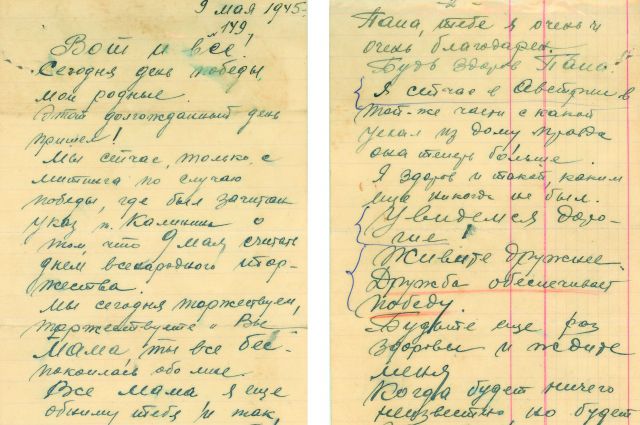 9 мая 1945
149.
Вот и всё!
Сегодня день победы,
мои родные.
Этот долгожданный день
пришел!
Мы сейчас, только, с
митинга по случаю
победы, где был зачитан
указ т. Калинина о
том что 9 мая считать
днем всенародного тор-
жества.
Мы сегодня торжествуем,
торжествуете и Вы
Мама, ты все бес-
покоилась обо мне.
Все мама я еще
обниму тебя и так,
Папа, тебе я очень и
очень благодарен.
Будь здоров Папа.
Я сейчас в Австрии в
той-же части с какой
уехал из дому правда
она теперь больше.
Я здоров и такой, каким
еще никогда не был.
Увидемся доро-
гие!
Живите дружнее.
Дружба обеспечивает
победу.
Будьте еще раз
здоровы и ждите
меня
Когда будет ничего
неизвестно, но будет